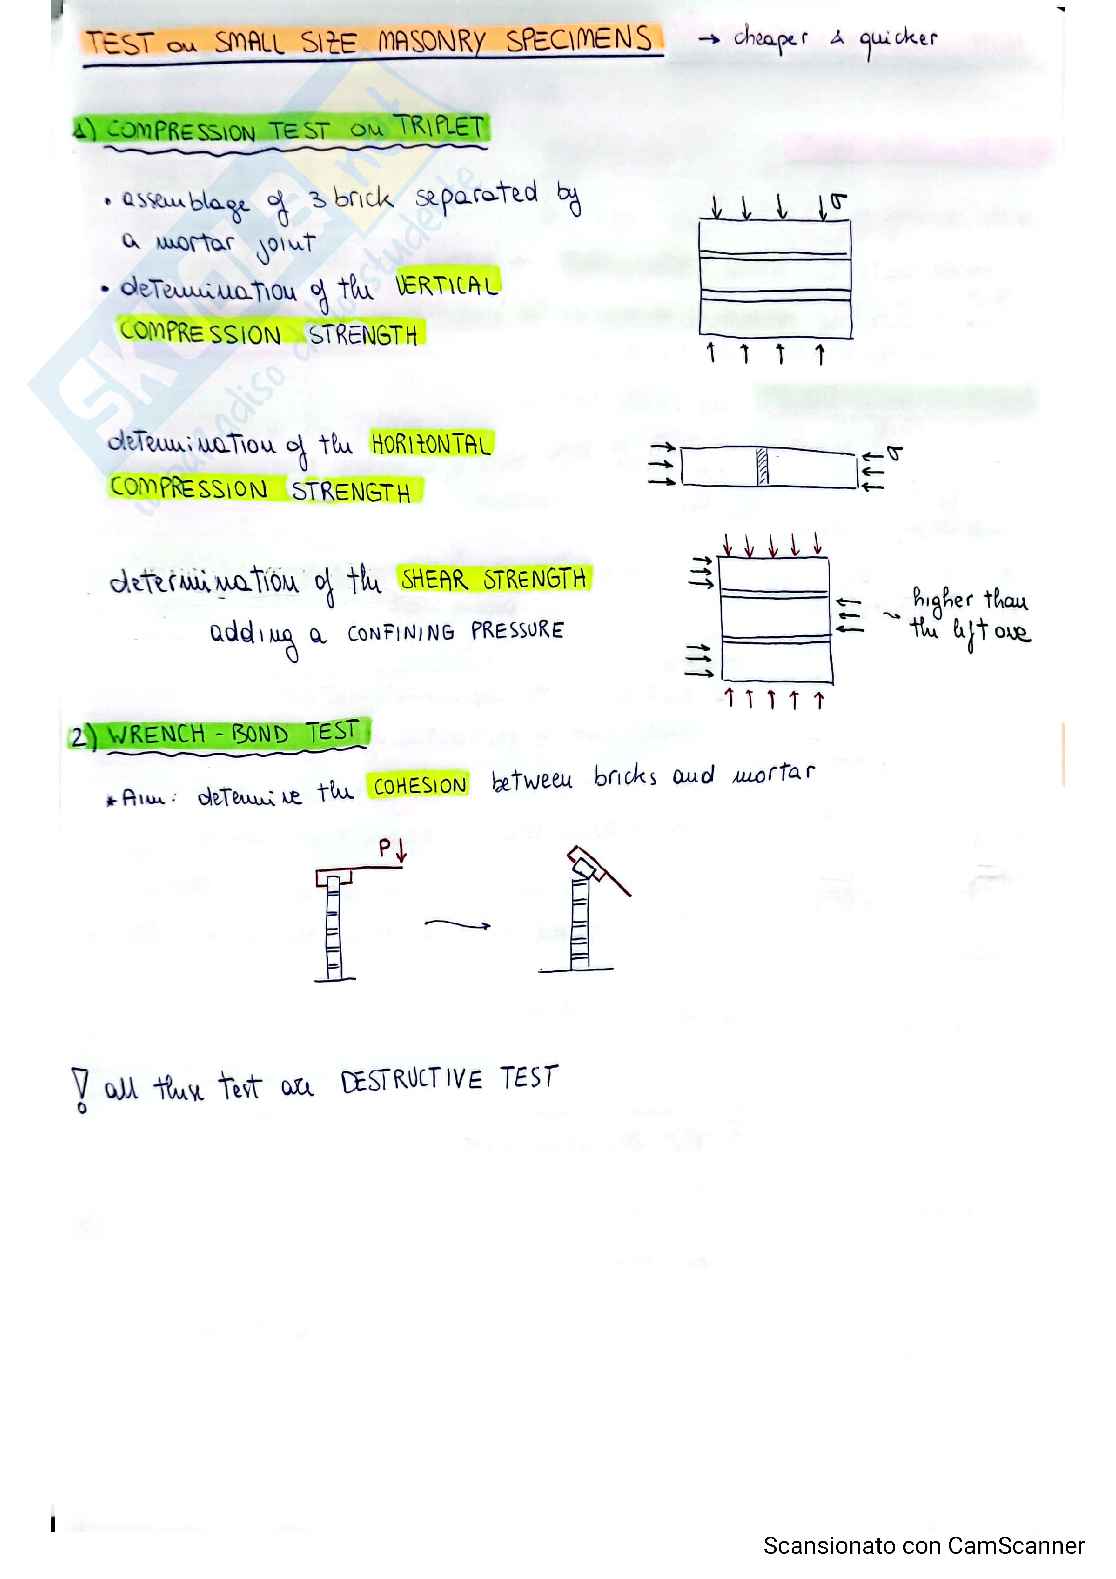 TEST on SMALL SIZE MASONRY SPECIMENS → cheaper & quicker
1) COMPRESSION TEST on TRIPLET
• assemblage of 3 brick separated by
a mortar joint
σ
• determination of the VERTICAL
COMPRESSION STRENGTH
determination of the HORIZONTAL
σ
COMPRESSION STRENGTH
determination of the SHEAR STRENGTH
higher than
the left one
adding a CONFINING PRESSURE
2) WRENCH - BOND TEST
* Aim: determine the COHESION between bricks and mortar
P
! all these test are DESTRUCTIVE TEST
SKUOLA.net
il paradiso dello studente
Scansionato con CamScanner